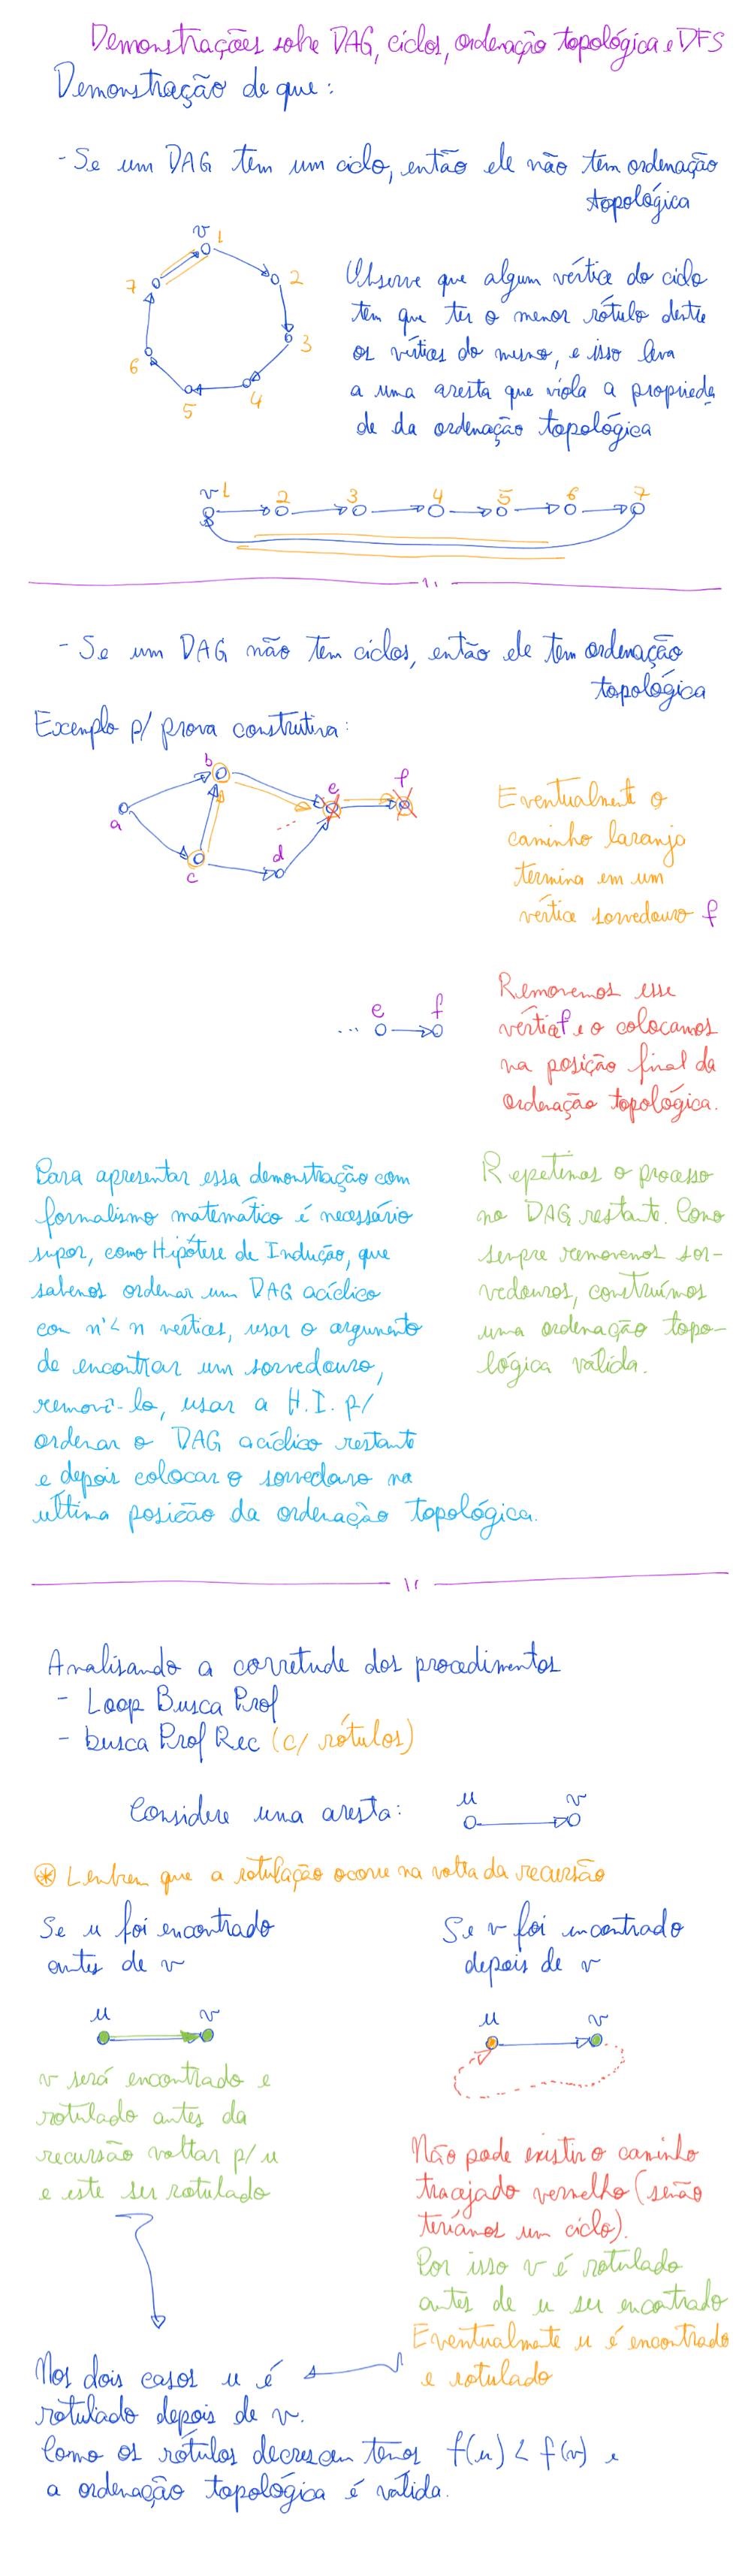 Demonstrações sobre DAG, ciclos, ordenação topológica e DFS
Demonstração de que:
- Se um DAG tem um ciclo, então ele não tem ordenação
topológica
v 1
2
3
4
5
6
7
Observe que algum vértice do ciclo
tem que ter o menor rótulo dentre
os vértices do mesmo, e isso leva
a uma aresta que viola a proprieda
de da ordenação topológica
v 1 2 3 4 5 6 7
- Se um DAG não tem ciclos, então ele tem ordenação
topológica
Exemplo p/ prova construtiva:
a
b
c
d
e
f
Eventualmente o
caminho laranja
termina em um
vértice sorvedouro f
... e f
Removemos esse
vértice f e o colocamos
na posição final da
ordenação topológica.
Repetimos o processo
no DAG restante. Como
sempre removemos sor-
vedouros, construímos
uma ordenação topo-
lógica válida.
Para apresentar essa demonstração com
formalismo matemático é necessário
supor, como Hipótese de Indução, que
sabemos ordenar um DAG acíclico
com n' < n vértices, usar o argumento
de encontrar um sorvedouro,
removê-lo, usar a H.I. p/
ordenar o DAG acíclico restante
e depois colocar o sorvedouro na
última posição da ordenação topológica.
Analisando a corretude dos procedimentos
- Loop Busca Prof
- busca Prof Rec (c/ rótulos)
Considere uma aresta: u v
* Lembrem que a rotulação ocorre na volta da recursão
Se u foi encontrado
antes de v
u v
v será encontrado e
rotulado antes da
recursão voltar p/ u
e este ser rotulado
Se v foi encontrado
depois de v
u v
Não pode existir o caminho
tracejado vermelho (senão
teríamos um ciclo).
Por isso v é rotulado
antes de u ser encontrado
Eventualmente u é encontrado
e rotulado
Nos dois casos u é
rotulado depois de v.
Como os rótulos decrescem temos f(u) < f(v) e
a ordenação topológica é válida.